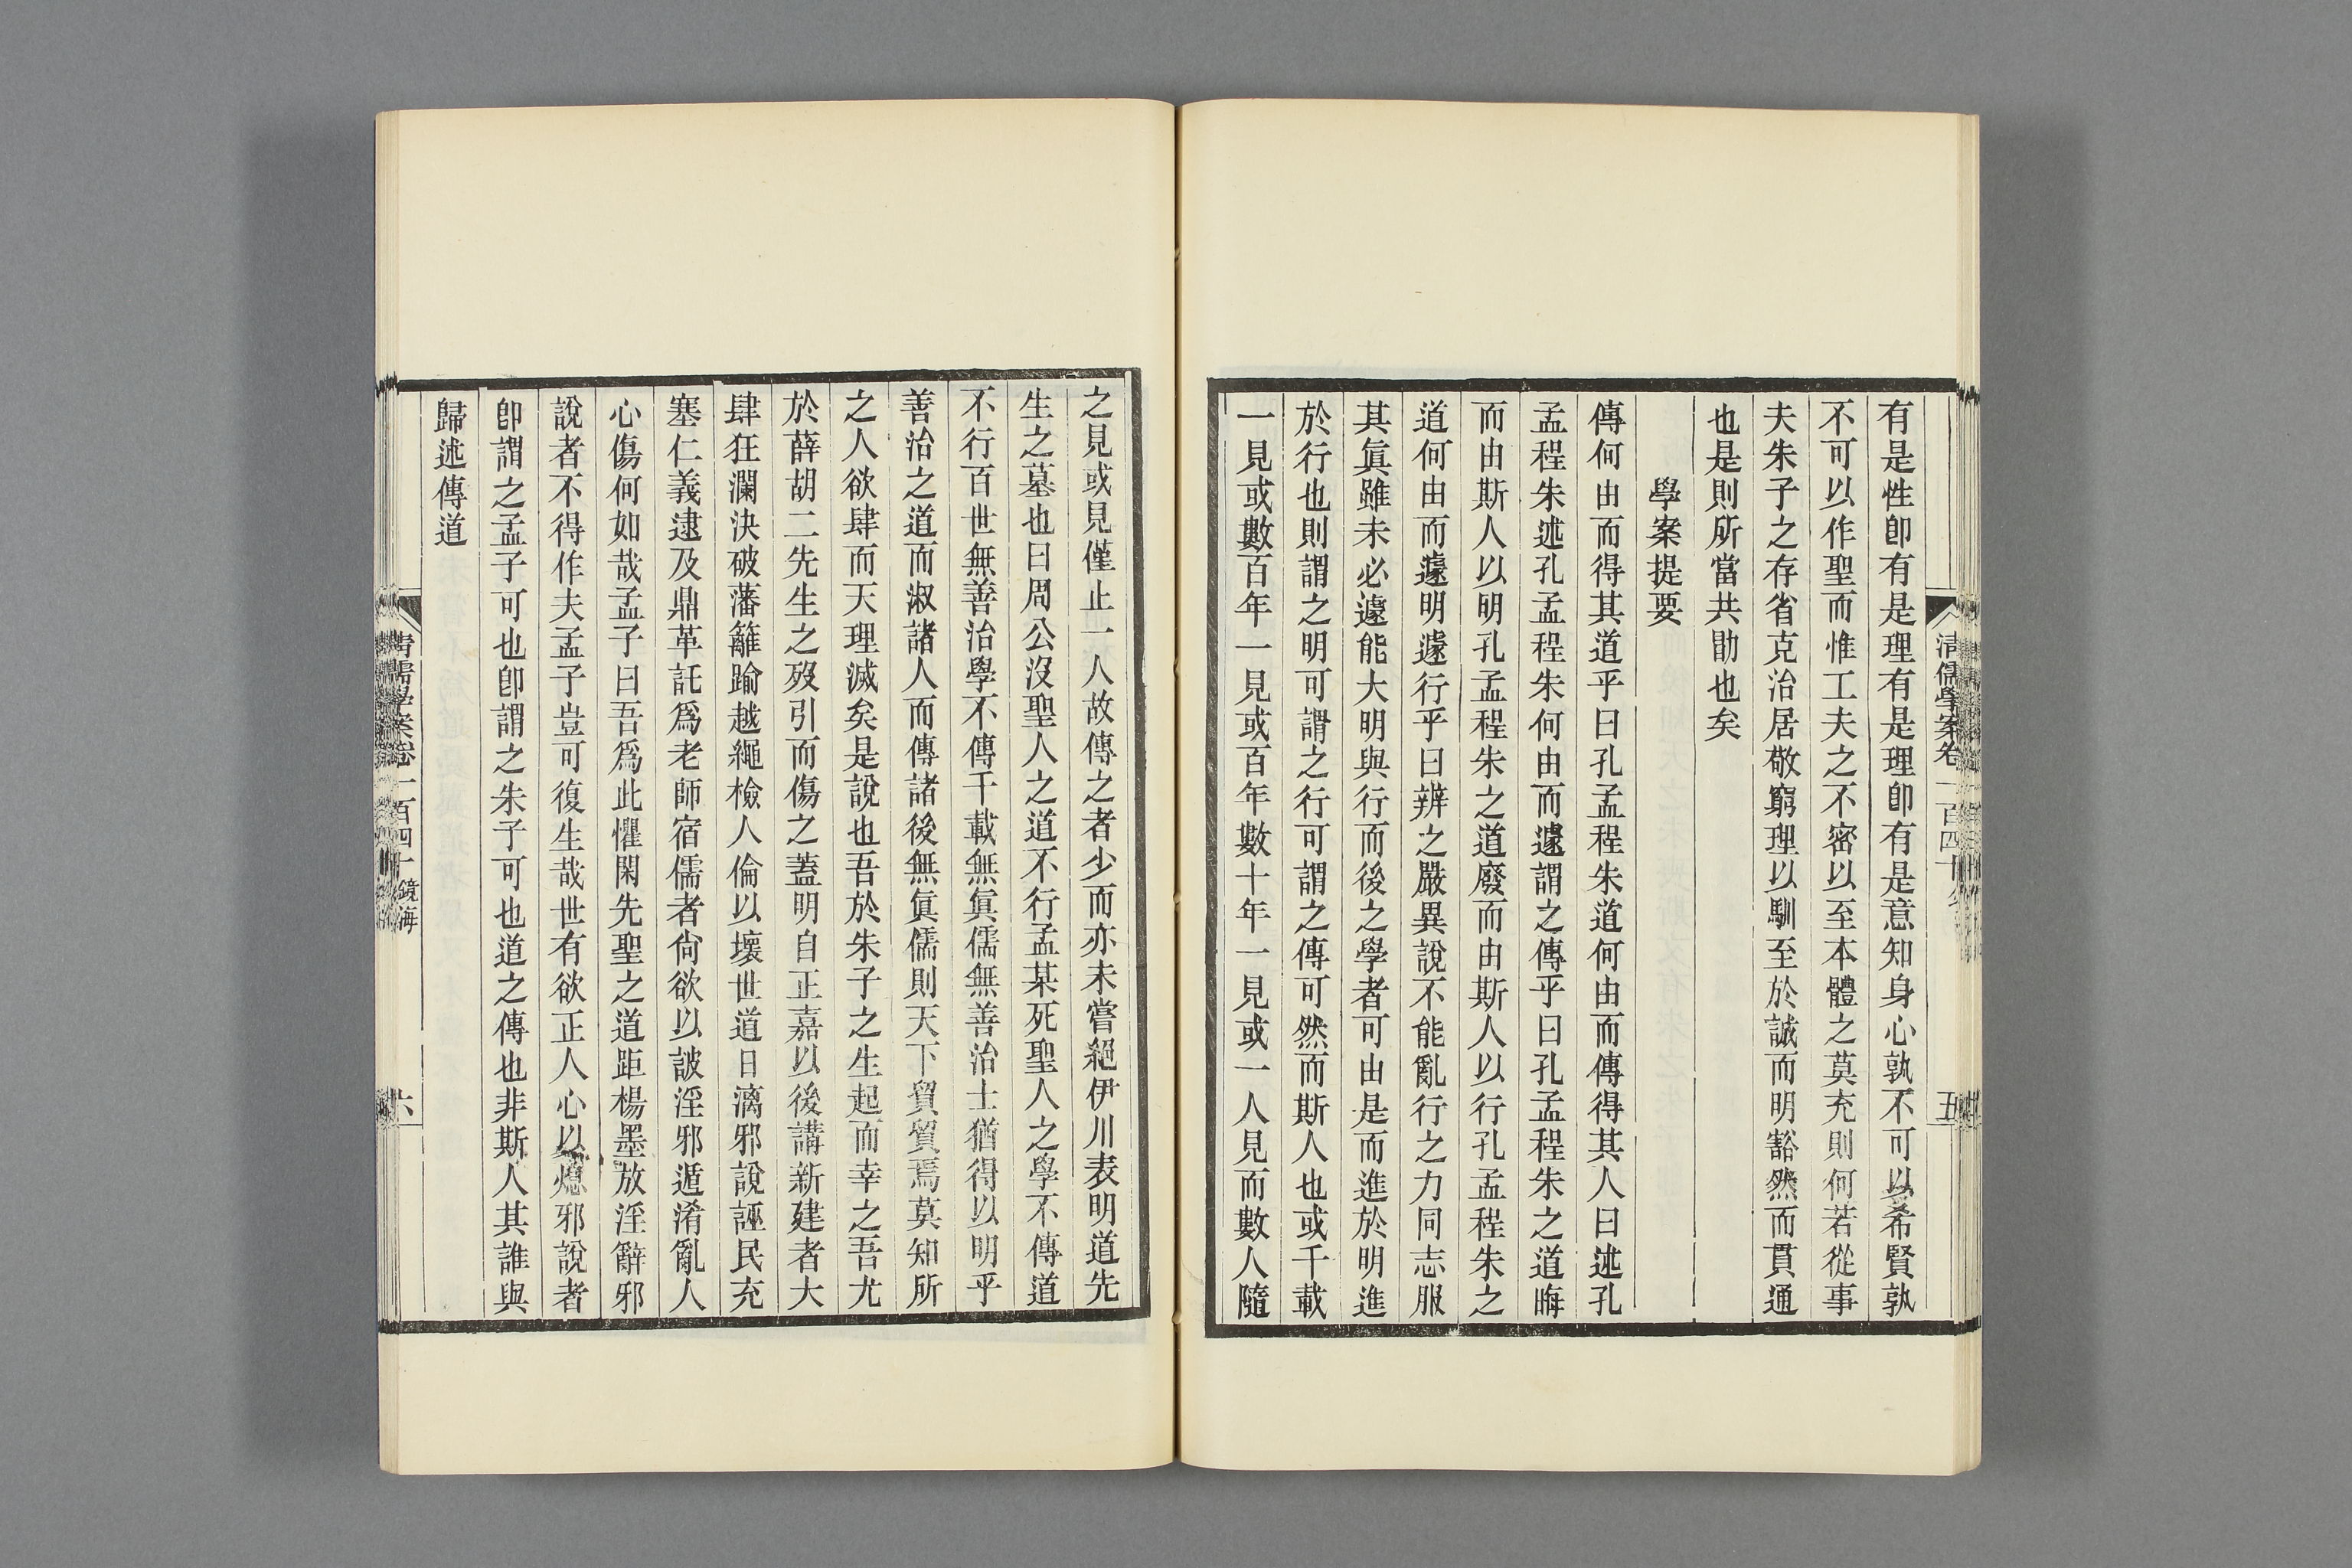 清儒學案卷一百四十
五
有是性卽有是理有是理卽有是意知身心孰不可以希賢孰
不可以作聖而惟工夫之不密以至本體之莫充則何若從事
夫朱子之存省克治居敬窮理以馴至於誠而明豁然而貫通
也是則所當共勖也矣
學案提要
傳何由而得其道乎曰孔孟程朱道何由而傳得其人曰述孔
孟程朱述孔孟程朱何由而遽謂之傳乎曰孔孟程朱之道晦
而由斯人以明孔孟程朱之道廢而由斯人以行孔孟程朱之
道何由而遽明遽行乎曰辨之嚴異說不能亂行之力同志服
其眞雖未必遽能大明與行而後之學者可由是而進於明進
於行也則謂之明可謂之行可謂之傳可然而斯人也或千載
一見或數百年一見或百年數十年一見或一人見而數人隨
之見或見僅止一人故傳之者少而亦未嘗絕伊川表明道先
生之墓也曰周公沒聖人之道不行孟某死聖人之學不傳道
不行百世無善治學不傳千載無眞儒無善治士猶得以明乎
善治之道而淑諸人而傳諸後無眞儒則天下貿貿焉莫知所
之人欲肆而天理滅矣是說也吾於朱子之生起而幸之吾尤
於薛胡二先生之歿引而傷之蓋明自正嘉以後講新建者大
肆狂瀾決破藩籬踰越繩檢人倫以壞世道日漓邪說誣民充
塞仁義逮及鼎革託爲老師宿儒者尙欲以詖淫邪遁淆亂人
心傷何如哉孟子曰吾爲此懼閑先聖之道距楊墨放淫辭邪
說者不得作夫孟子豈可復生哉世有欲正人心以熄邪說者
卽謂之孟子可也卽謂之朱子可也道之傳也非斯人其誰與
歸述傳道
清儒學案卷一百四十 鏡海
六